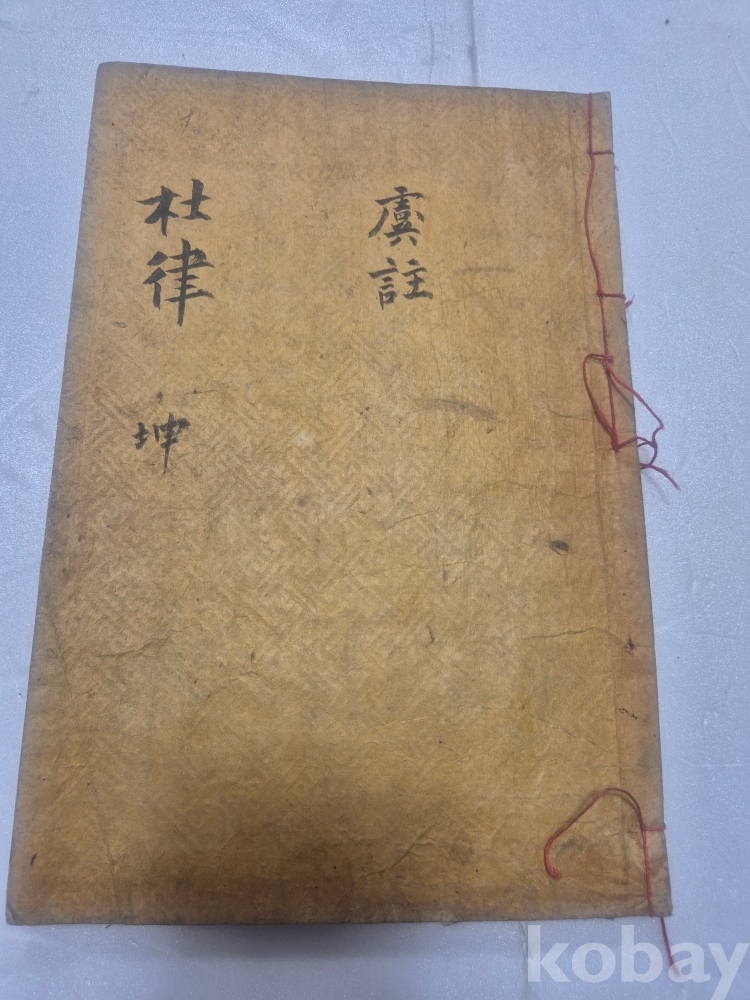 虞註
杜律 坤
kobay